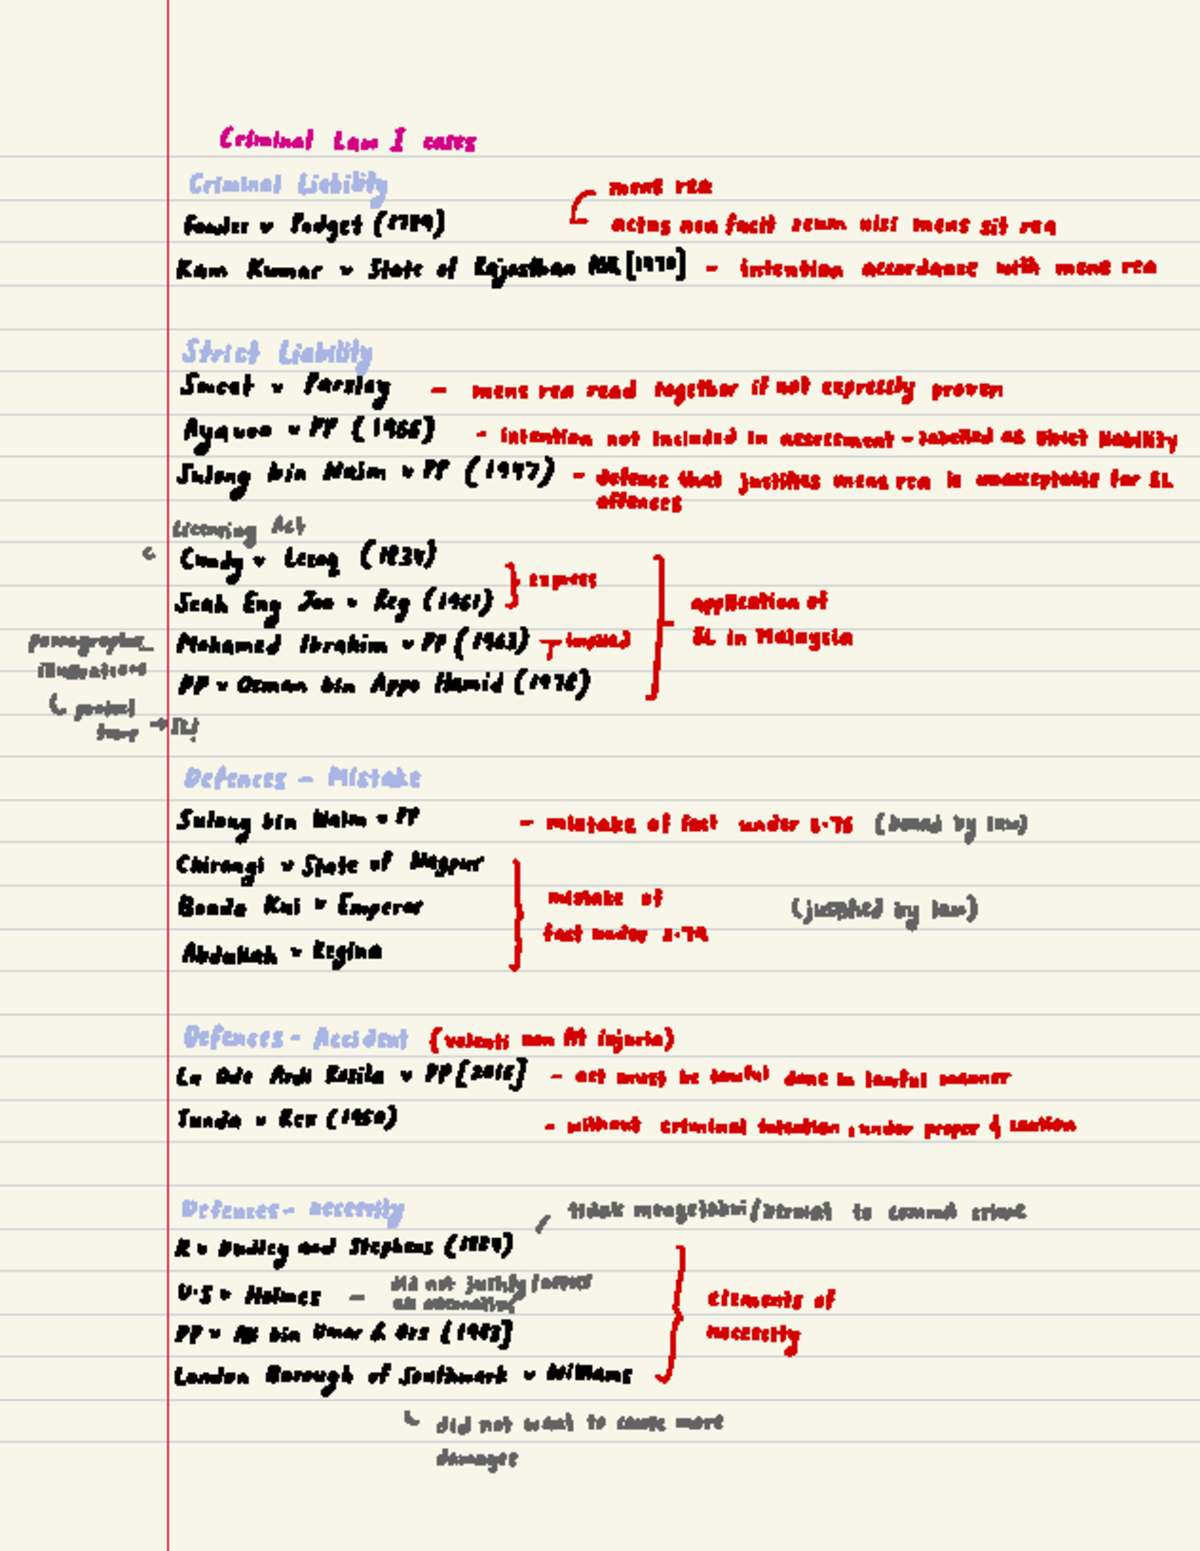 Criminal Law I cases
Criminal Liability
mens rea
Fowler v Padget (1789)
actus non facit reum nisi mens sit rea
Ram Kumar v State of Rajasthan AIR [1970] - intention accordance with mens rea
Strict Liability
Sweet v Parsley - mens rea read together if not expressly proven
Ayavoo v PP (1966) - intention not included in assessment - labelled as strict liability
Sulong bin Nain v PP (1947) - defence that justifies mens rea is unacceptable for SL
offences
Licensing Act
Cundy v Lecoq (1884)
express
Seah Eng Joo v Reg (1961)
application of
SL in Malaysia
Mohamed Ibrahim v PP (1963) implied
illustrations
PP v Osman bin Apo Hamid (1978)
Defences - Mistake
Sulong bin Nain v PP - mistake of fact under s.76 (bound by law)
Chirangi v State of Nagpur
Bonda Kui v Emperor
mistake of
fact under s.79
(justified by law)
Abdullah v Regina
Defences - Accident (volenti non fit injuria)
La Ode Ardi Rasila v PP [2015] - act must be lawful done in lawful manner
Tunda v Rex (1950) - without criminal intention, under proper & caution
Defences - necessity
to commit crime
R v Dudley and Stephens (1884)
U.S v Holmes - did not justify
elements of
necessity
PP v Ali bin Umar & Ors [1983]
London Borough of Southwark v Williams
did not want to cause more
damages